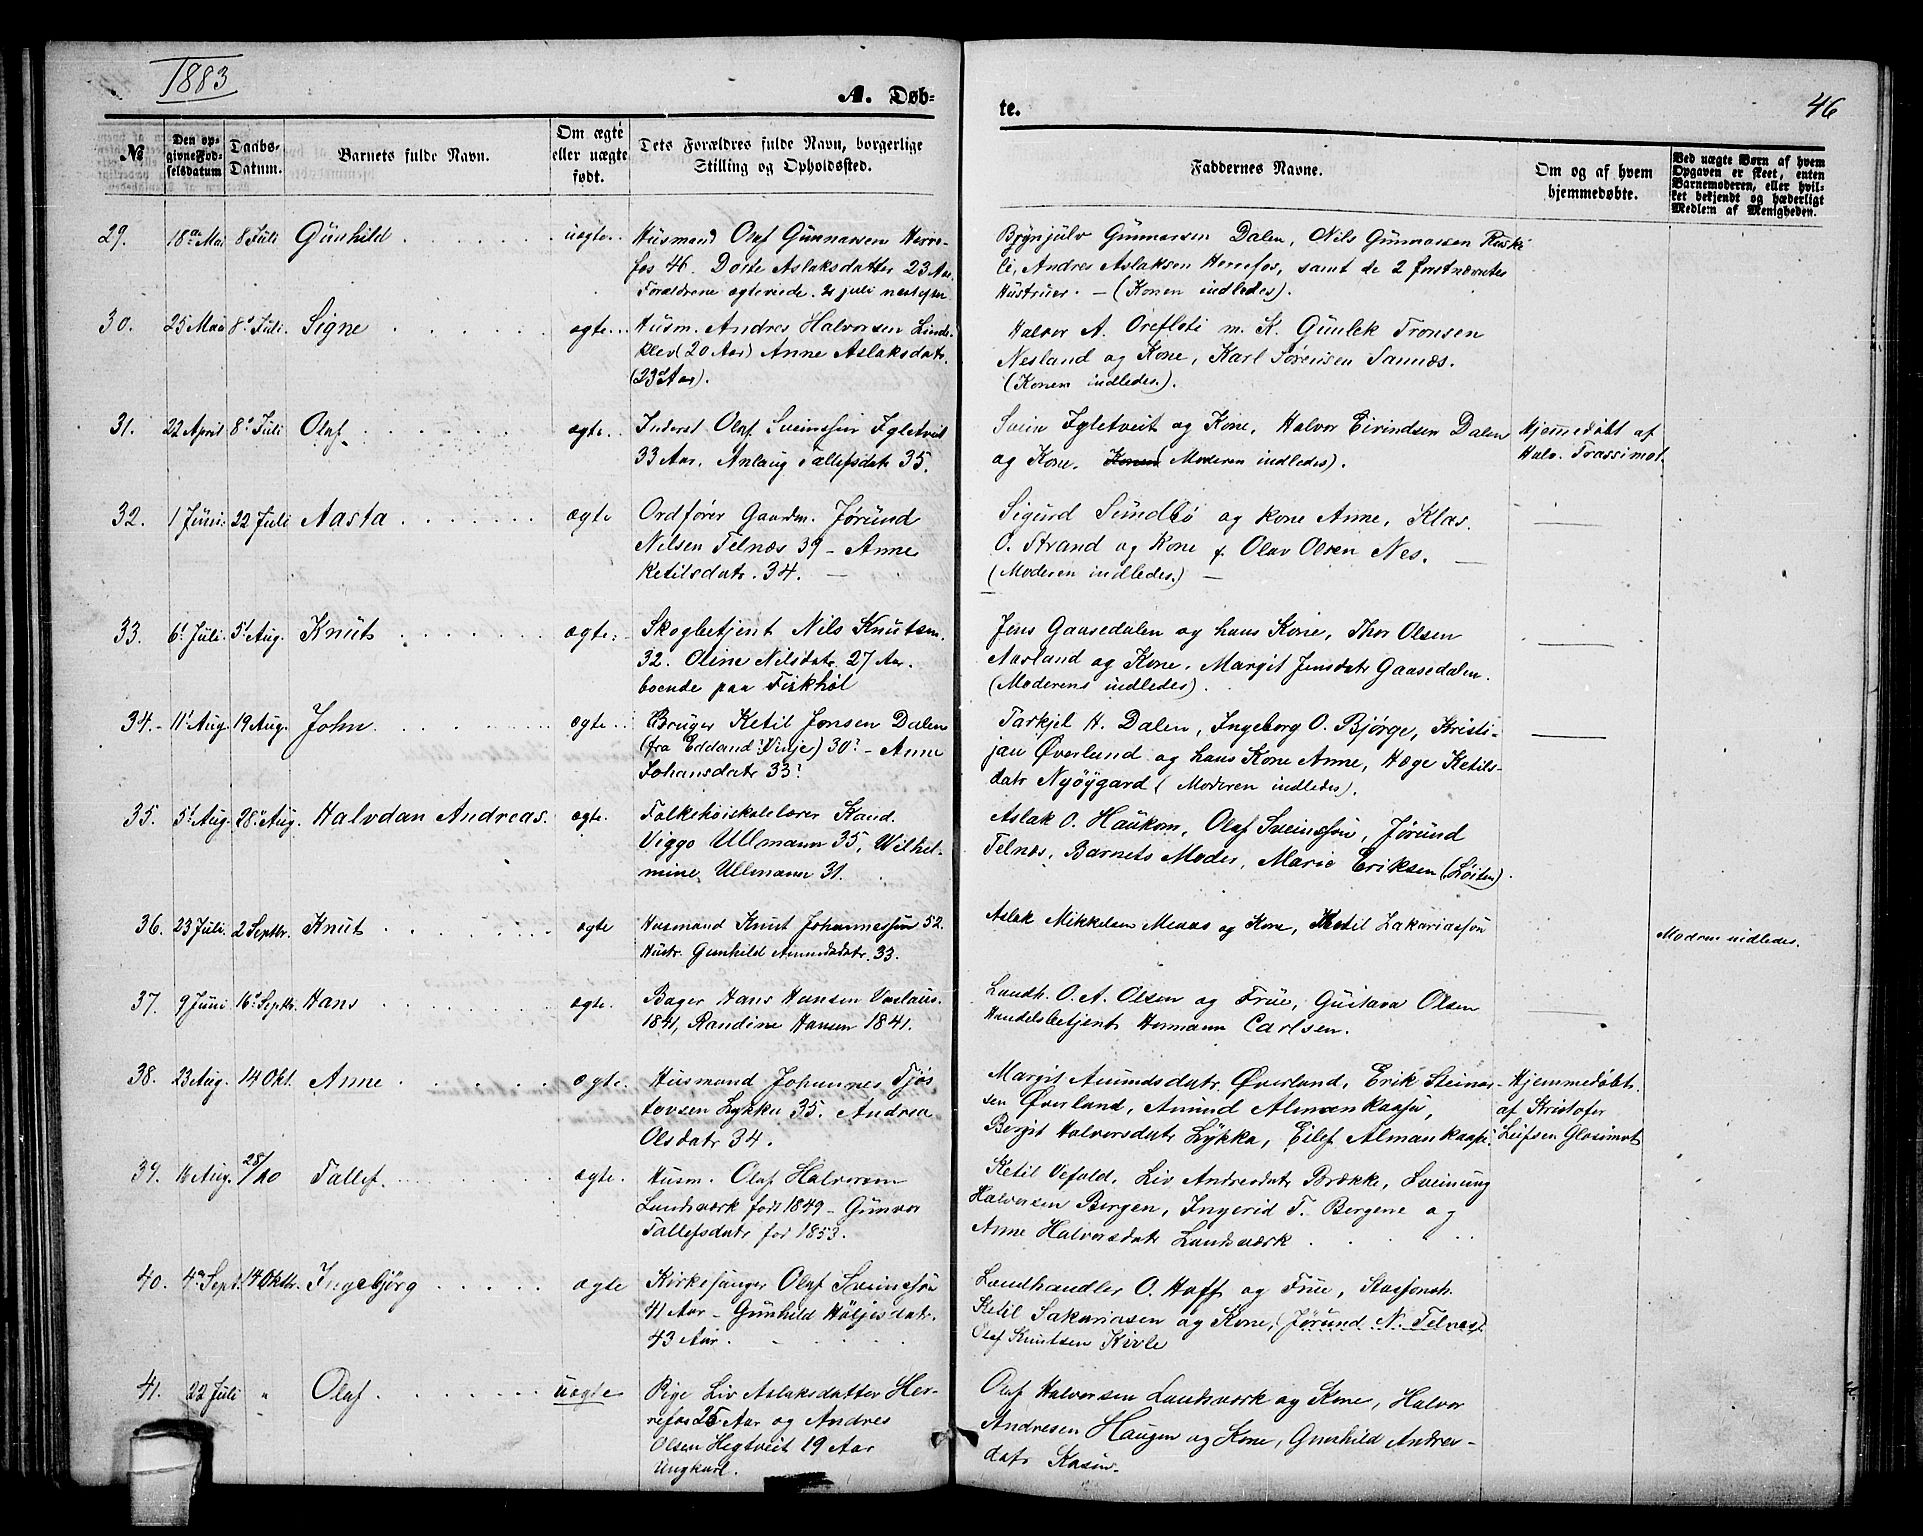 1883
A. Døb-
te.
46
№
Den op-
givne Fød-
selsdatum
Daabs-
Datum.
Barnets fulde Navn.
Om ægte
eller uægte
født.
Dets Forældres fulde Navn, borgerlige
Stilling og Opholdssted.
Faddernes Navne.
Om og af hvem
hjemmedøbte.
Ved uægte Børn af hvem
Opgaven er skeet, enten
Barnemoderen, eller hvil-
ket bekjendt og hæderligt
Medlem af Menigheden.
29. 18de Mai 8 Juli Gunhild uægte.
Husmand Olaf Gunnarsen Herre-
fos 46. Dorte Aslaksdatter 23 Aar.
Forældrene ægteviede juli
Brynjulv Gunnarsen Dalen, Nils Gunnarsen
li, Andres Aslaksen Herrefos, samt de 2 førstnævntes
Hustruer. – (Konen indledes).
30. 25 Mai 8d Juli. Signe ægte.
Husm. Andres Halvorsen Linde-
klev (20 Aar) Anne Aslaksdatr.
(23 Aar).
Halvor A. Orefleti m. K. Gunlek Tronsen
Nesland og Kone, Karl Sørensen Sannæs.
(Konen indledes.).
31. 22 April 8d Juli Olaf ægte.
Inderst Olaf Sveinssøn Igletveit
33 Aar, Anlaug Tallefsdatr 35.
Svein Igletveit og Kone, Halvor Eivindsen Dalen
og Kone. Konen Moderen indledes).
Hjemmedøbt af
Halv. Trassimot.
32. 1 Juni. 22 Juli Aasta ægte
Ordfører Gaardm. Jørund
Nilsen Telnæs 39 – Anne
Ketilsdatr. 34. –
Sigurd Sundbø og kone Anne, Klas
O. Strand og Kone f. Olav Olsen Nes. –
(Moderen indledes.) –
33. 6t Juli. 5t Aug. Knut ægte.
Skogbetjent Nils Knutsen.
32. Oline Nilsdatr. 27 Aar.
boende paa Fiskhøl
Jens Gaasedalen og hans Kone, Thor Olsen
Aarland og Kone, Margit Jensdatr Gaasedalen.
(Moderens indledes).
34. 11t Aug. 19 Aug. John ægte
Bruger Ketil Jonsen Dalen
(fra Eddand? Vinje) 30? – Anne
Johansdatr 33?
Tarkjel H. Dalen, Ingeborg O. Bjørge, Kristi-
jan Øverlund og hans Kone Anne, Hæge Ketils-
datr Nyøygard ( Moderen indledes).
35. 5t Aug. 28de Aug. Halvdan Andreas. ægte.
Folkehøiskolelærer Kand.
Viggo Ullmann 35, Wilhel-
mine Ullmann 31.
Aslak O. Haukom, Olaf Sveinssøn, Jørund
Telnæs, Barnets Moder, Marie Eriksen (Løiten).
36. 23 Juli. 2 Septbr. Knut ægte
Husmand Knut Johannessøn 52.
Hustr. Gunhild Amundsdatr. 33.
Aslak Mikkelsen Meaas og Kone, Ketil Zakariassøn
Moderen indledes.
37. 9 Juni 16d Septbr. Hans ægte.
Bager Hans Hansen Vaslaus.
1841, Randine Hansen 1841.
Landh. O. A. Olsen og Frue, Gustava Olsen
Handelsbetjent Hermann Carlsen.
38. 23 Aug. 14 Okt. Anne ægte.
Husmand Johannes Tjøs-
tovsen Lykka 35. Andrea
Olsdatr 34.
Margit Amundsdatr Øverland, Erik Steinar-
sen Øverland, Amund Almankaasa,
Bergit Halvorsdatr Lykka, Eilef Almankaasa.
Hjemmedøbt
af Kristofer
Leifsen Glosimot
39. 16 Aug. 28/10 Tallef. ægte.
Husm. Olaf Halvorsen
Landsværk født 1849 – Gunvor
Tallefsdatr fød 1853.
Ketil Vefald, Liv Andresdatr Brække, Sveinung
Halvorsen Bergen, Ingerid T. Bergene og
Anne Halvorsdatr Landsværk
40. 4de Sept. 14 Oktbr. Ingebjörg ægte
Kirkesanger Olaf Sveinssøn
41 Aar – Gunhild Høljesdatr.
43 Aar.
Landhandler O. Hoff og Frue, Stasjonsh.
Ketil Sakariasen og Kone, (Jørund N. Telnæs).
Olaf Knutsen Kivle
41. 22 Juli " Olaf. uægte
Pige Liv Aslaksdatter Her-
refos 25 Aar og Andres
Olsen Hegtveit 19 Aar
Ungkarl.
Olaf Halvorsen Landsværk og Kone, Halvor
Andresen Haugen og Kone, Gunhild Andres-
datr Kasin.